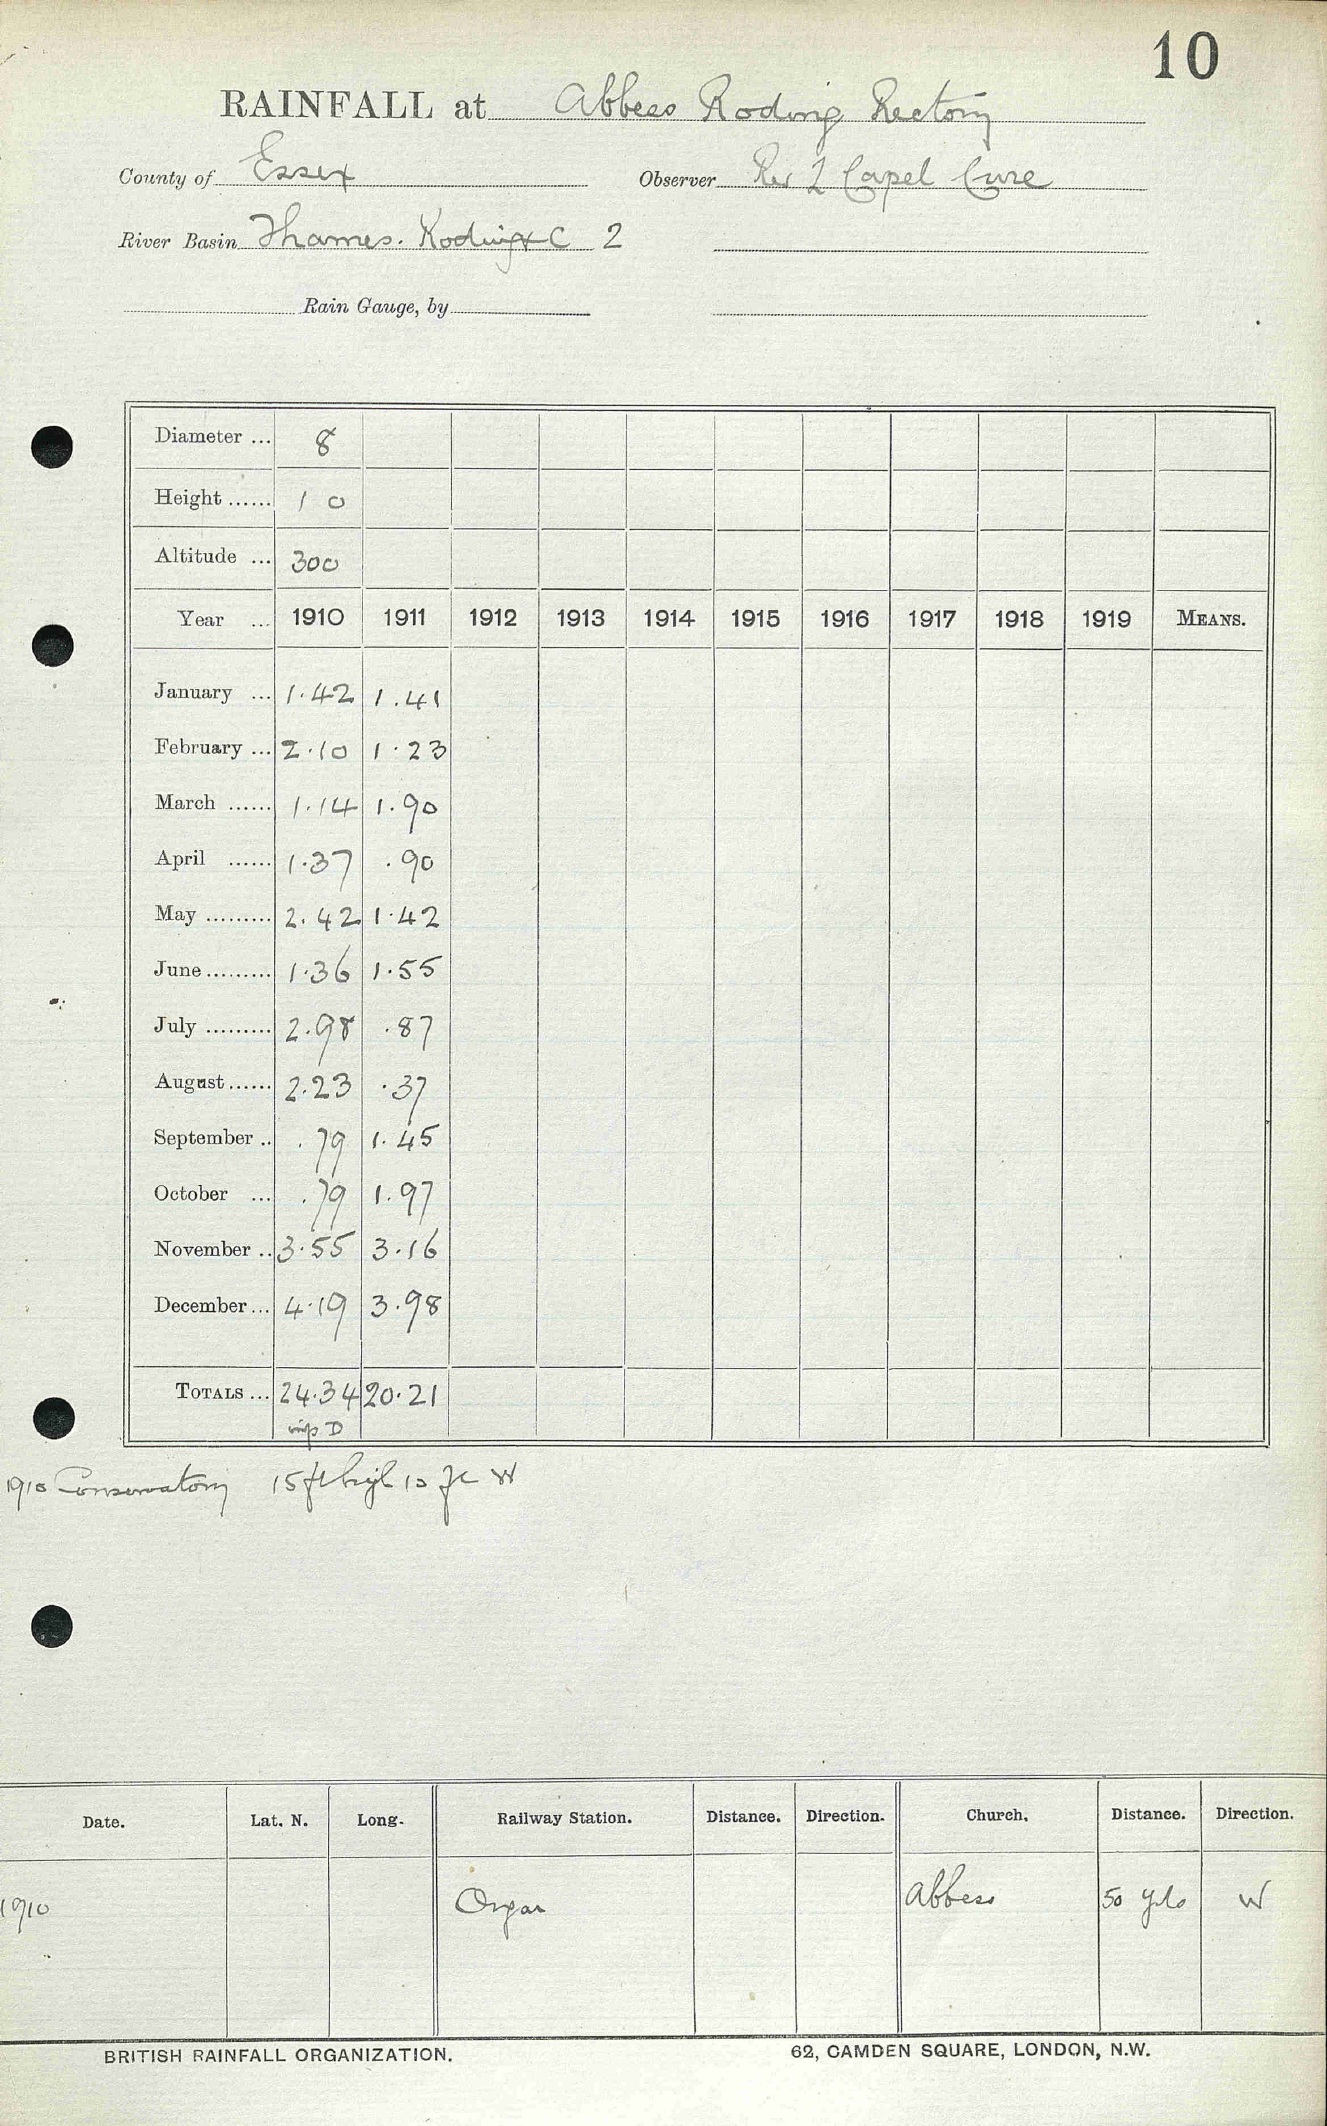 10
RAINFALL at Abbess Roding Rectory
County of Essex Observer Rev L Capel Cure
River Basin Thames. Roding &c 2
Rain Gauge, by
Diameter ... 8
Height ...... 1 0
Altitude ... 300
Year ... 1910 1911 1912 1913 1914 1915 1916 1917 1918 1919 MEANS.
January ... 1.42 1.41
February ... 2.10 1.23
March ...... 1.14 1.90
April ...... 1.37 .90
May ......... 2.42 1.42
June ......... 1.36 1.55
July ......... 2.98 .87
August ...... 2.23 .37
September .. .79 1.45
October ... .79 1.97
November .. 3.55 3.16
December ... 4.19 3.98
TOTALS ... 24.34 20.21
D
1910 Conservatory 15 ft high 10 ft W
Date. Lat. N. Long. Railway Station. Distance. Direction. Church. Distance. Direction.
1910 Ongar Abbess 50 yds W
BRITISH RAINFALL ORGANIZATION. 62, CAMDEN SQUARE, LONDON, N.W.